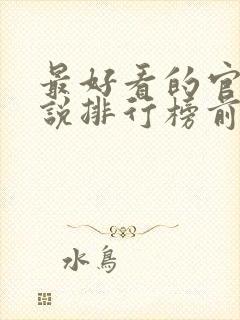 最好看的官
说排行榜前
水鸟